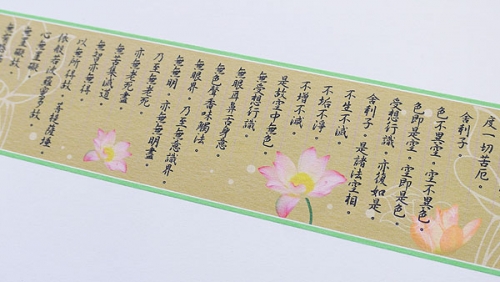 度一切苦厄。
舍利子。
色不異空。空不異色。
色即是空。空即是色。
受想行識。亦復如是。
舍利子。是諸法空相。
不生不滅。
不垢不淨。
不增不減。
是故空中無色。
無受想行識。
無眼耳鼻舌身意。
無色聲香味觸法。
無眼界。乃至無意識界。
無無明。亦無無明盡。
乃至無老死。
亦無老死盡。
無苦集滅道。
無智亦無得。
以無所得故。菩提薩埵。
依般若波羅蜜多故。
心無罣礙。
無罣礙故。